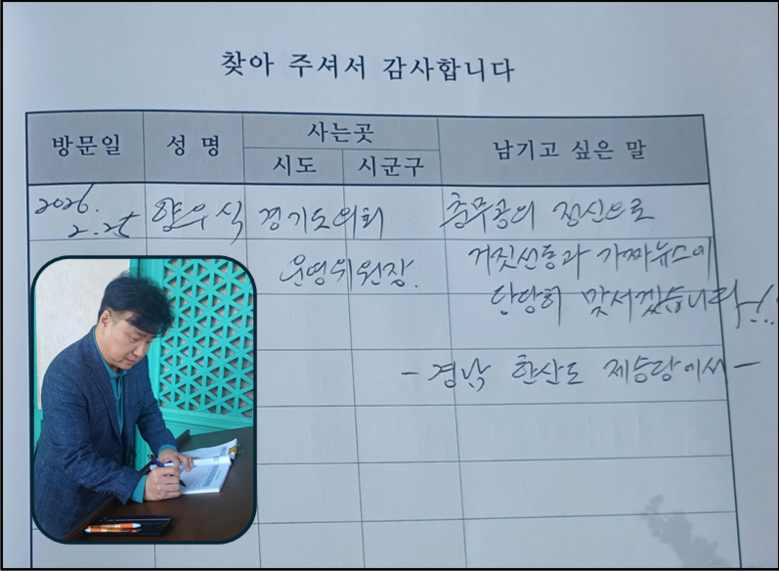 찾아 주셔서 감사합니다
방문일 성명 사는곳 남기고 싶은 말
시도 시군구
2026. 양우식 경기도의회 충무공의 정신으로
2.25
운영위원장. 거짓선동과 가짜뉴스에
당당히 맞서겠습니다!!
- 경남 한산도 제승당에서 -